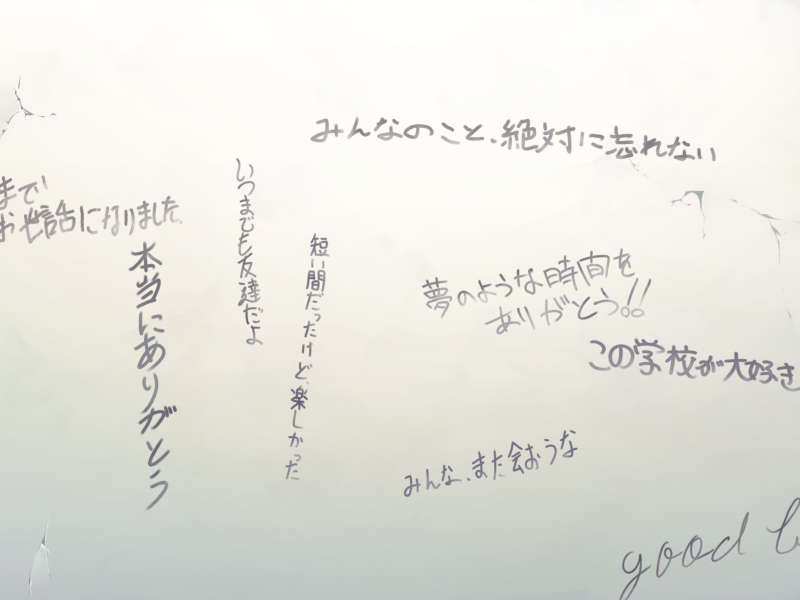 みんなのこと、絶対に忘れない
まで
お世話になりました。
本当にありがとう
いつまでも友達だよ
短い間だったけど、楽しかった
夢のような時間を
ありがとう!!
この学校が大好き
みんな、また会おうな
good